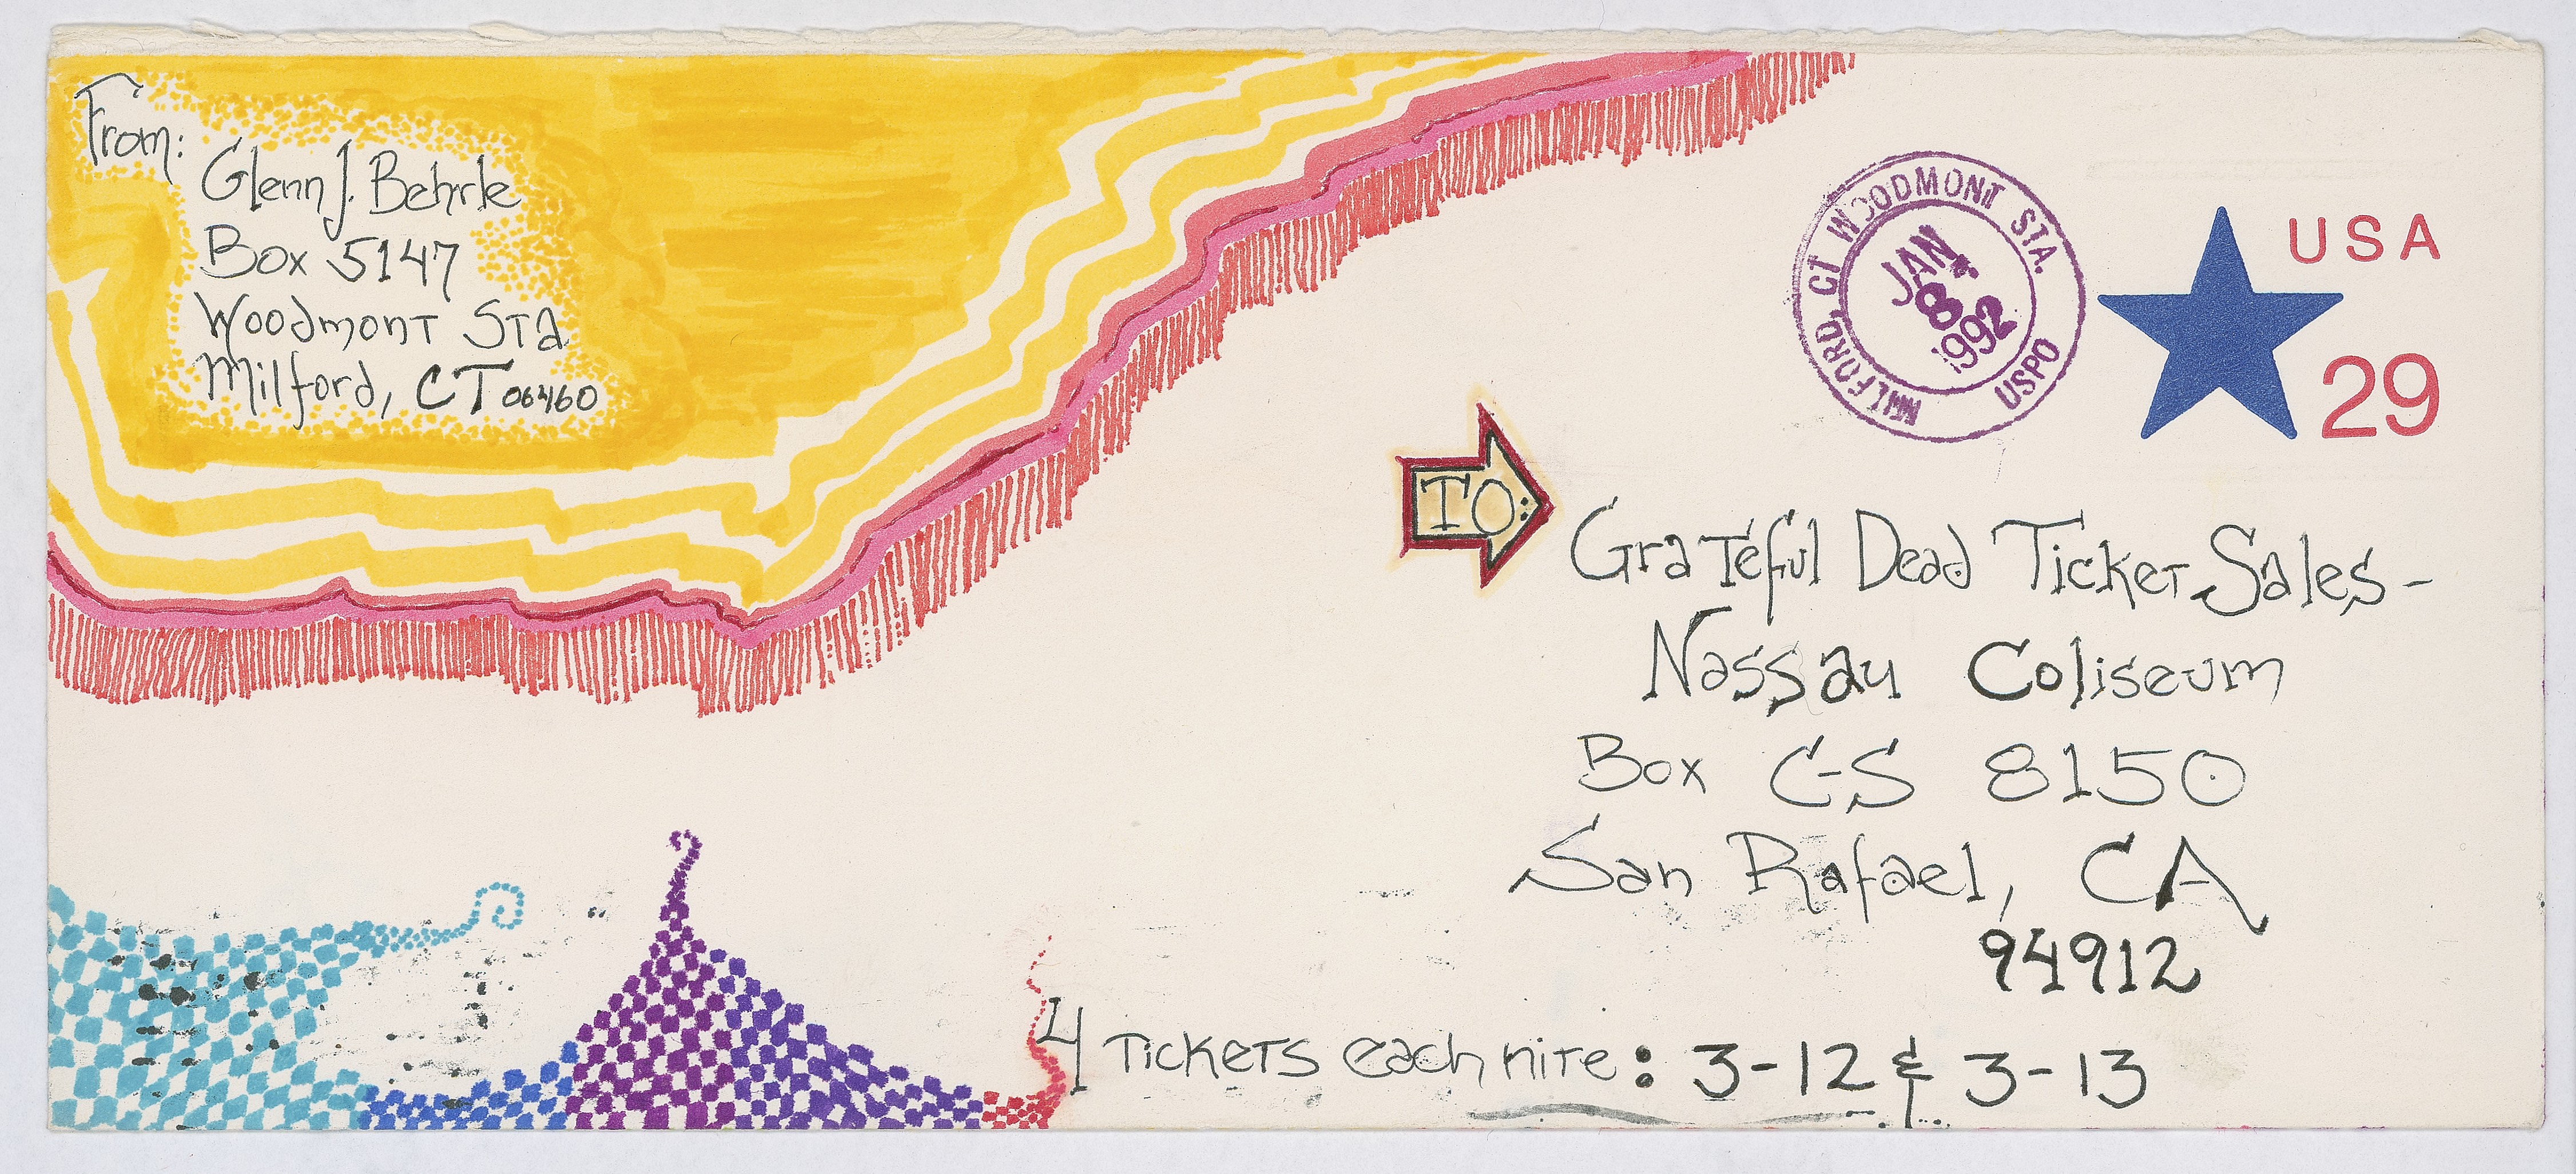 From:
Glenn J. Behrle
Box 5147
Woodmont Sta
Milford, CT 06460
MILFORD, CT WOODMONT STA.
JAN
8
1992
USPO
USA
29
TO:
Grateful Dead Ticket Sales-
Nassau Coliseum
Box CS 8150
San Rafael, CA
94912
4 Tickets each nite: 3-12 & 3-13